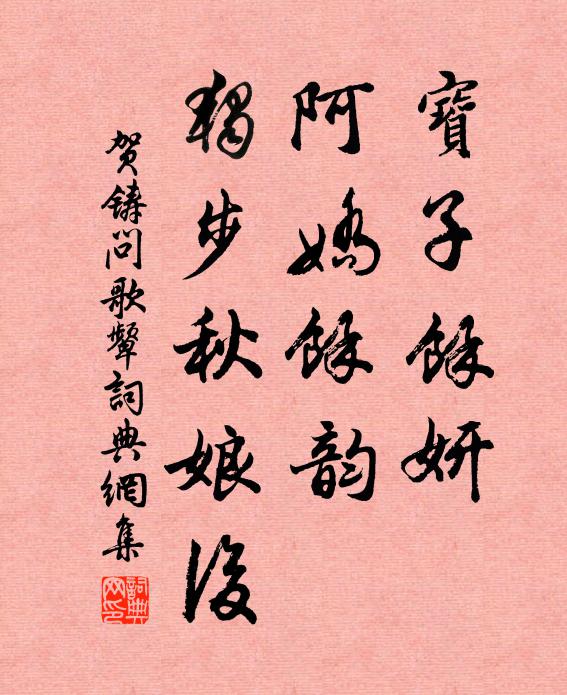 寶子餘妍
阿嬌餘韵
獨步秋娘後
贺鑄問歌顰詞典網集
詞典網印